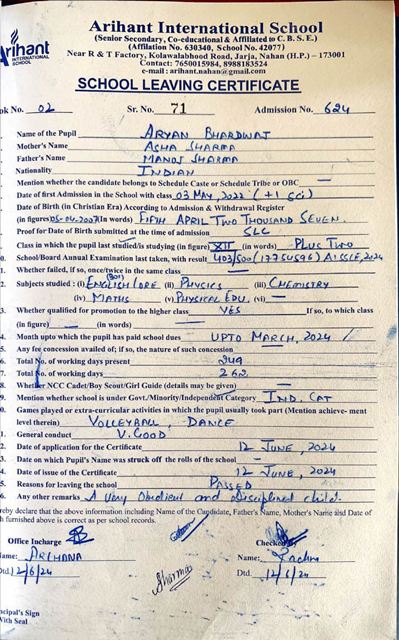 Arihant International School
(Senior Secondary, Co-educational & Affiliated to C. B. S. E.)
(Affilation No. 630340, School No. 42077)
Near R & T Factory, Kolawalabhood Road, Jarja, Nahan (H.P.) – 173001
Contact: 7650015984, 8988183524
e-mail : arihant.nahan@gmail.com
Arihant
INTERNATIONAL
SCHOOL
SCHOOL LEAVING CERTIFICATE
ok No. 02 Sr. No. 71 Admission No. 624
Name of the Pupil ARYAN BHARDWAJ
Mother's Name ASHA SHARMA
Father's Name MANOJ SHARMA
Nationality INDIAN
Mention whether the candidate belongs to Schedule Caste or Schedule Tribe or OBC —
Date of first Admission in the School with class 03 MAY, 2022 (+1 Sci)
Date of Birth (in Christian Era) According to Admission & Withdrawal Register
(in figures) 05-04-2007 (In words) FIFTH APRIL TWO THOUSAND SEVEN.
Proof for Date of Birth submitted at the time of admission SLC
Class in which the pupil last studied/is studying (in figure) XII (in words) PLUS TWO
0. School/Board Annual Examination last taken, with result 403/500 (17754596) AISSCE, 2024
1. Whether failed, if so, once/twice in the same class —
2. Subjects studied : (i) ENGLISH CORE (301) (ii) PHYSICS (iii) CHEMISTRY
(iv) MATHS (v) PHYSICAL EDU. (vi) —
3. Whether qualified for promotion to the higher class YES If so, to which class
(in figure) — (in words) —
4. Month upto which the pupil has paid school dues UPTO MARCH, 2024
5. Any fee concession availed of; if so, the nature of such concession —
6. Total No. of working days present 249
7. Total No. of working days 262
8. Whether NCC Cadet/Boy Scout/Girl Guide (details may be given) —
9. Mention whether school is under Govt./Minority/Independent Category IND. CAT
0. Games played or extra-curricular activities in which the pupil usually took part (Mention achieve- ment
level therein) VOLLEYBALL, DANCE
1. General conduct V. GOOD
2. Date of application for the Certificate 12 JUNE, 2024
3. Date on which Pupil's Name was struck off the rolls of the school —
4. Date of issue of the Certificate 12 JUNE, 2024
5. Reasons for leaving the school PASSED
6. Any other remarks A Very Obedient and Disciplined child.
reby declare that the above information including Name of the Candidate, Father's Name, Mother's Name and Date of
h furnished above is correct as per school records.
Office Incharge Checked By
ame: ARCHANA Name:
Dtd. 12/6/24 Sharma Dtd. 12/6/24
ncipal's Sign
With Seal